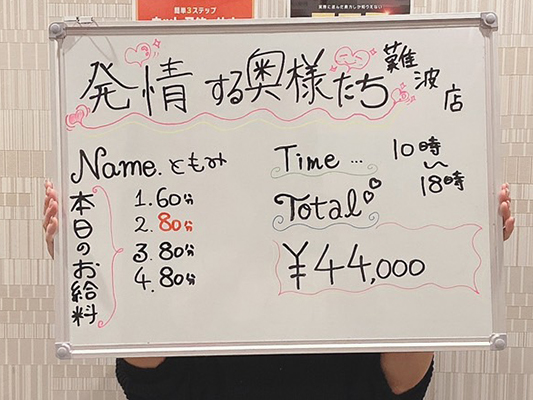 簡単3ステップ
発情する奥様たち 難波店
Name. ともみ
本日のお給料
1. 60分
2. 80分
3. 80分
4. 80分
Time … 10時～18時
Total
¥44,000